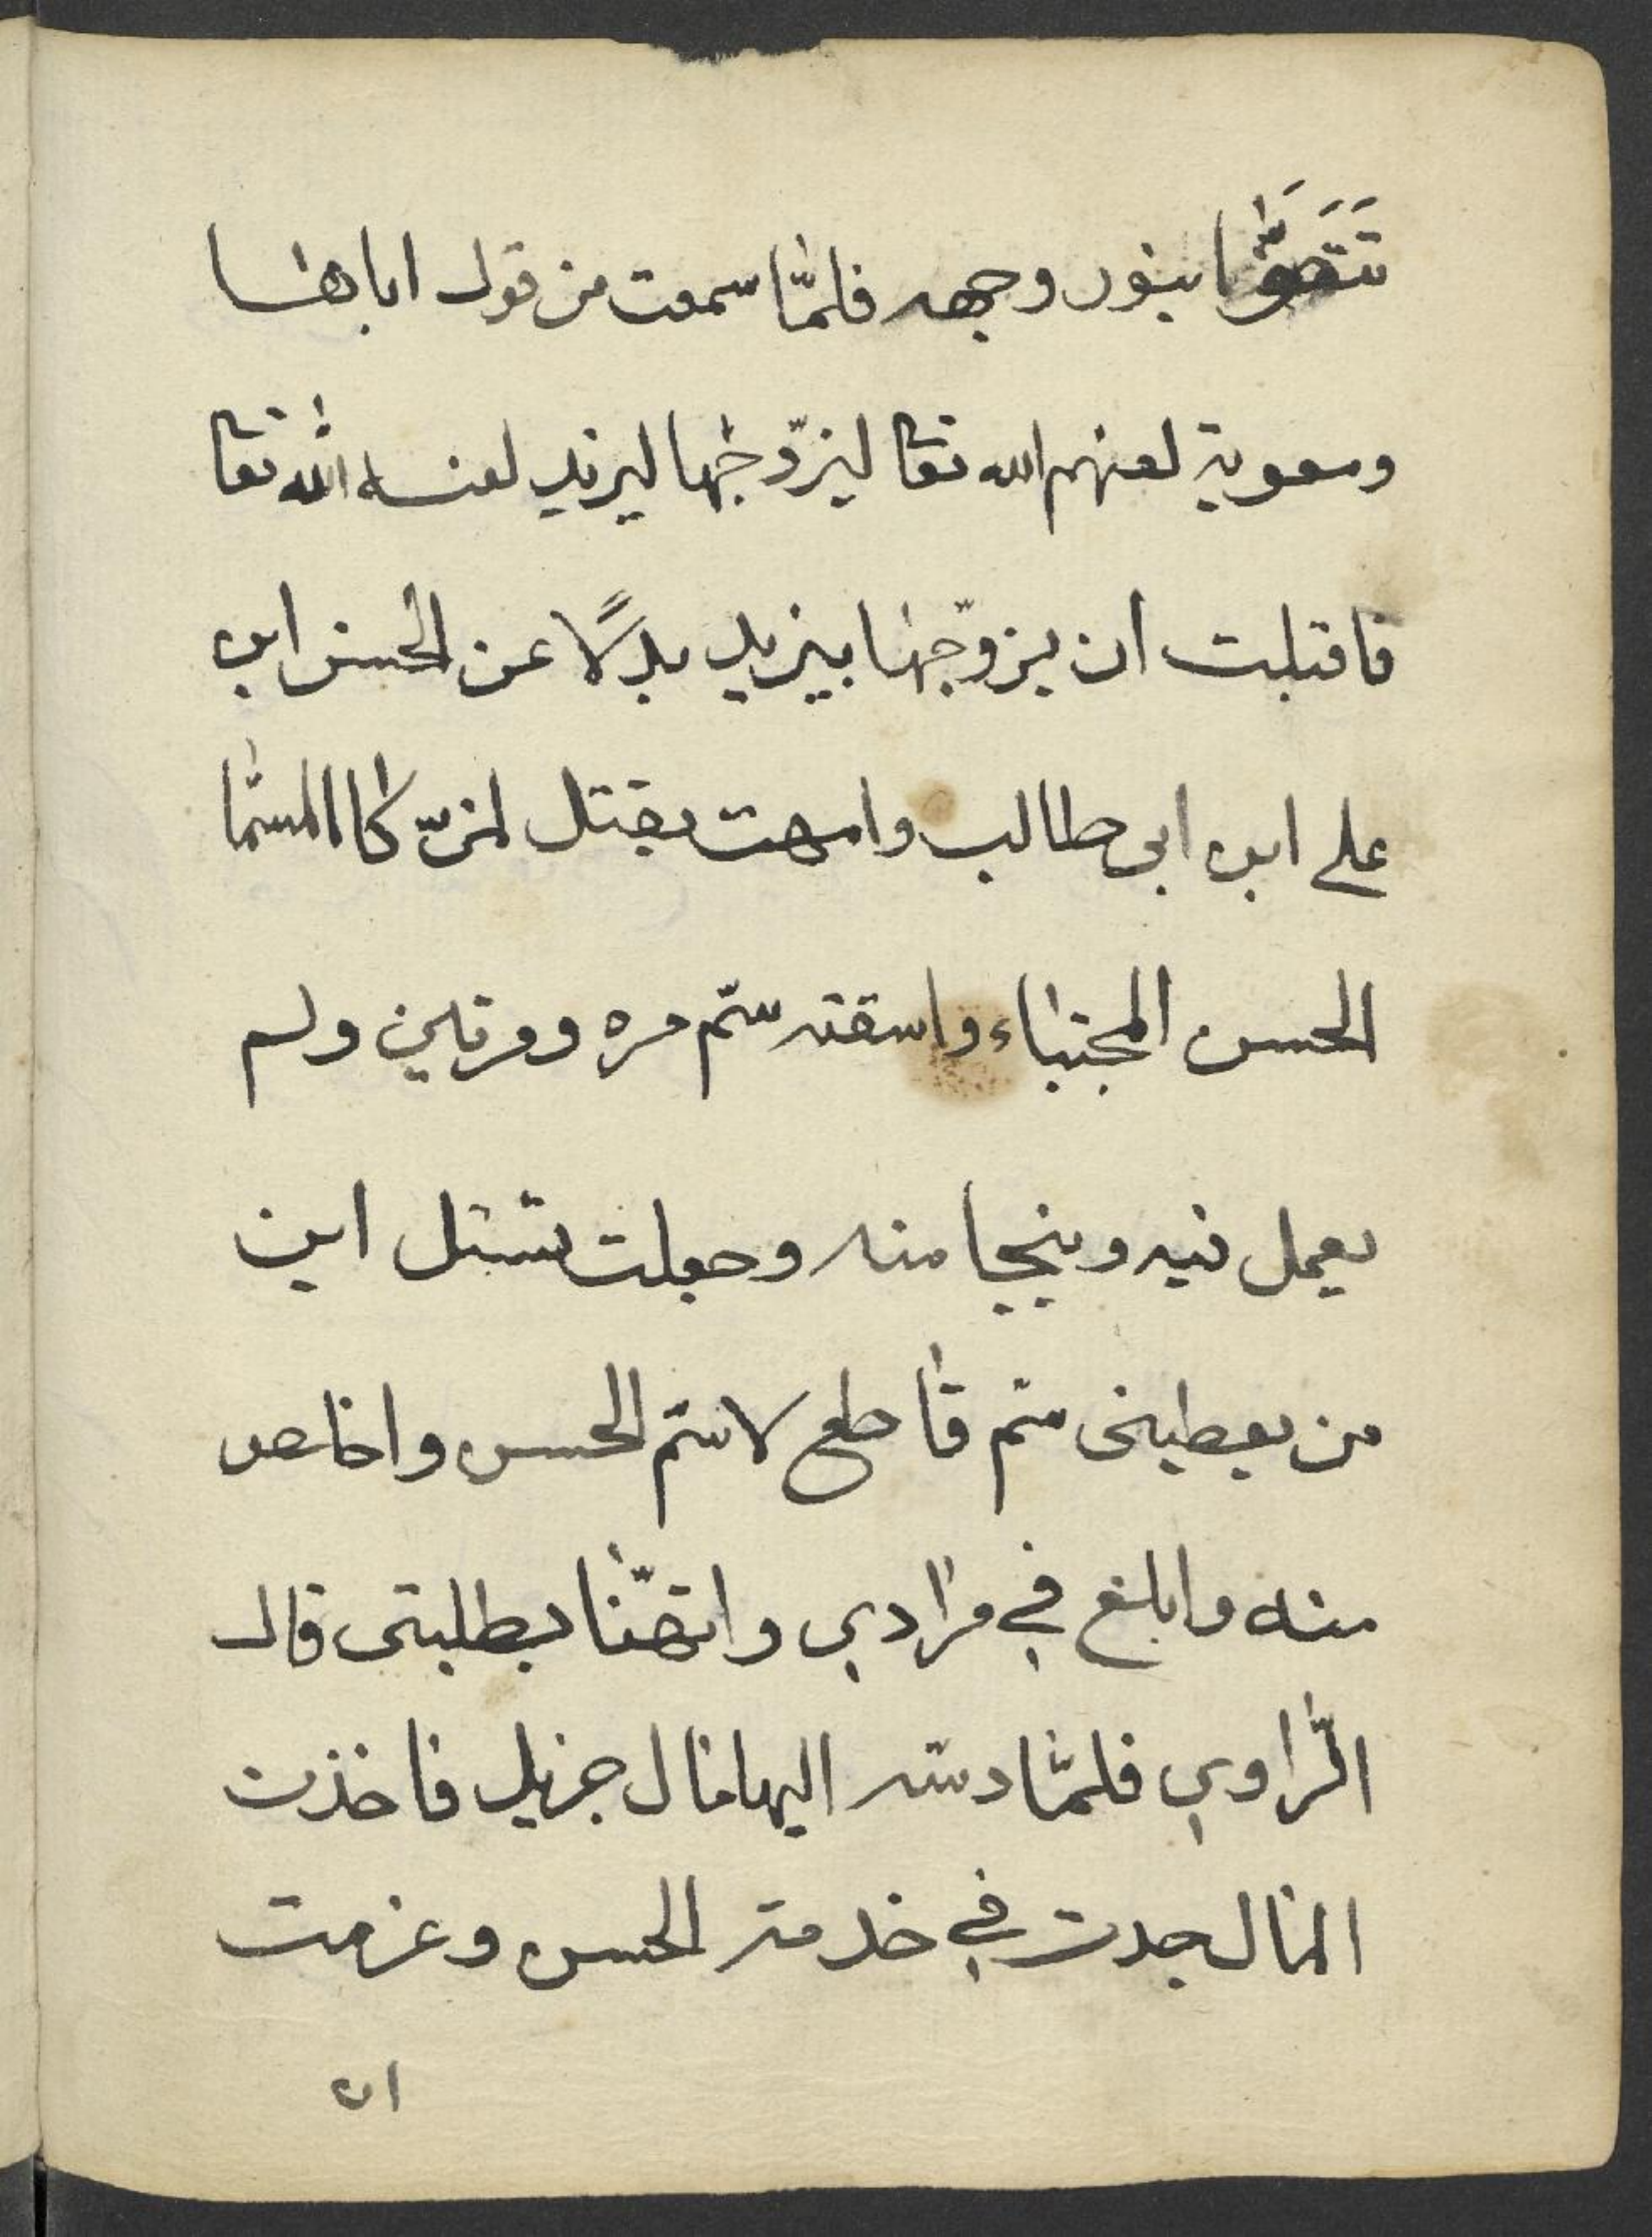 بنور وجهه فلمّا سمعت من قول اباها
ومعوية لعنهم الله تعا ليزّوجها ليزيد لعنه الله تعا
فاقبلت ان يزوّجها بيزيد بدلًا عن الحسن ابن
علي ابن ابي طالب وامهت بقتل المسمّا
الحسن المجتباء واسقته سّم مره ومرتين ولم
يعمل فيه وينجا منه وجعلت تسئل اين
من يعطيني سّم قاطع لاسّم الحسن واخلص
منه وابلغ في مرادي واتهنّا بطلبتي قال
الّراوي فلمّا دسّه اليها مال جزيل فاخذت
المال جدت في خدمة الحسن وعزمت
ان